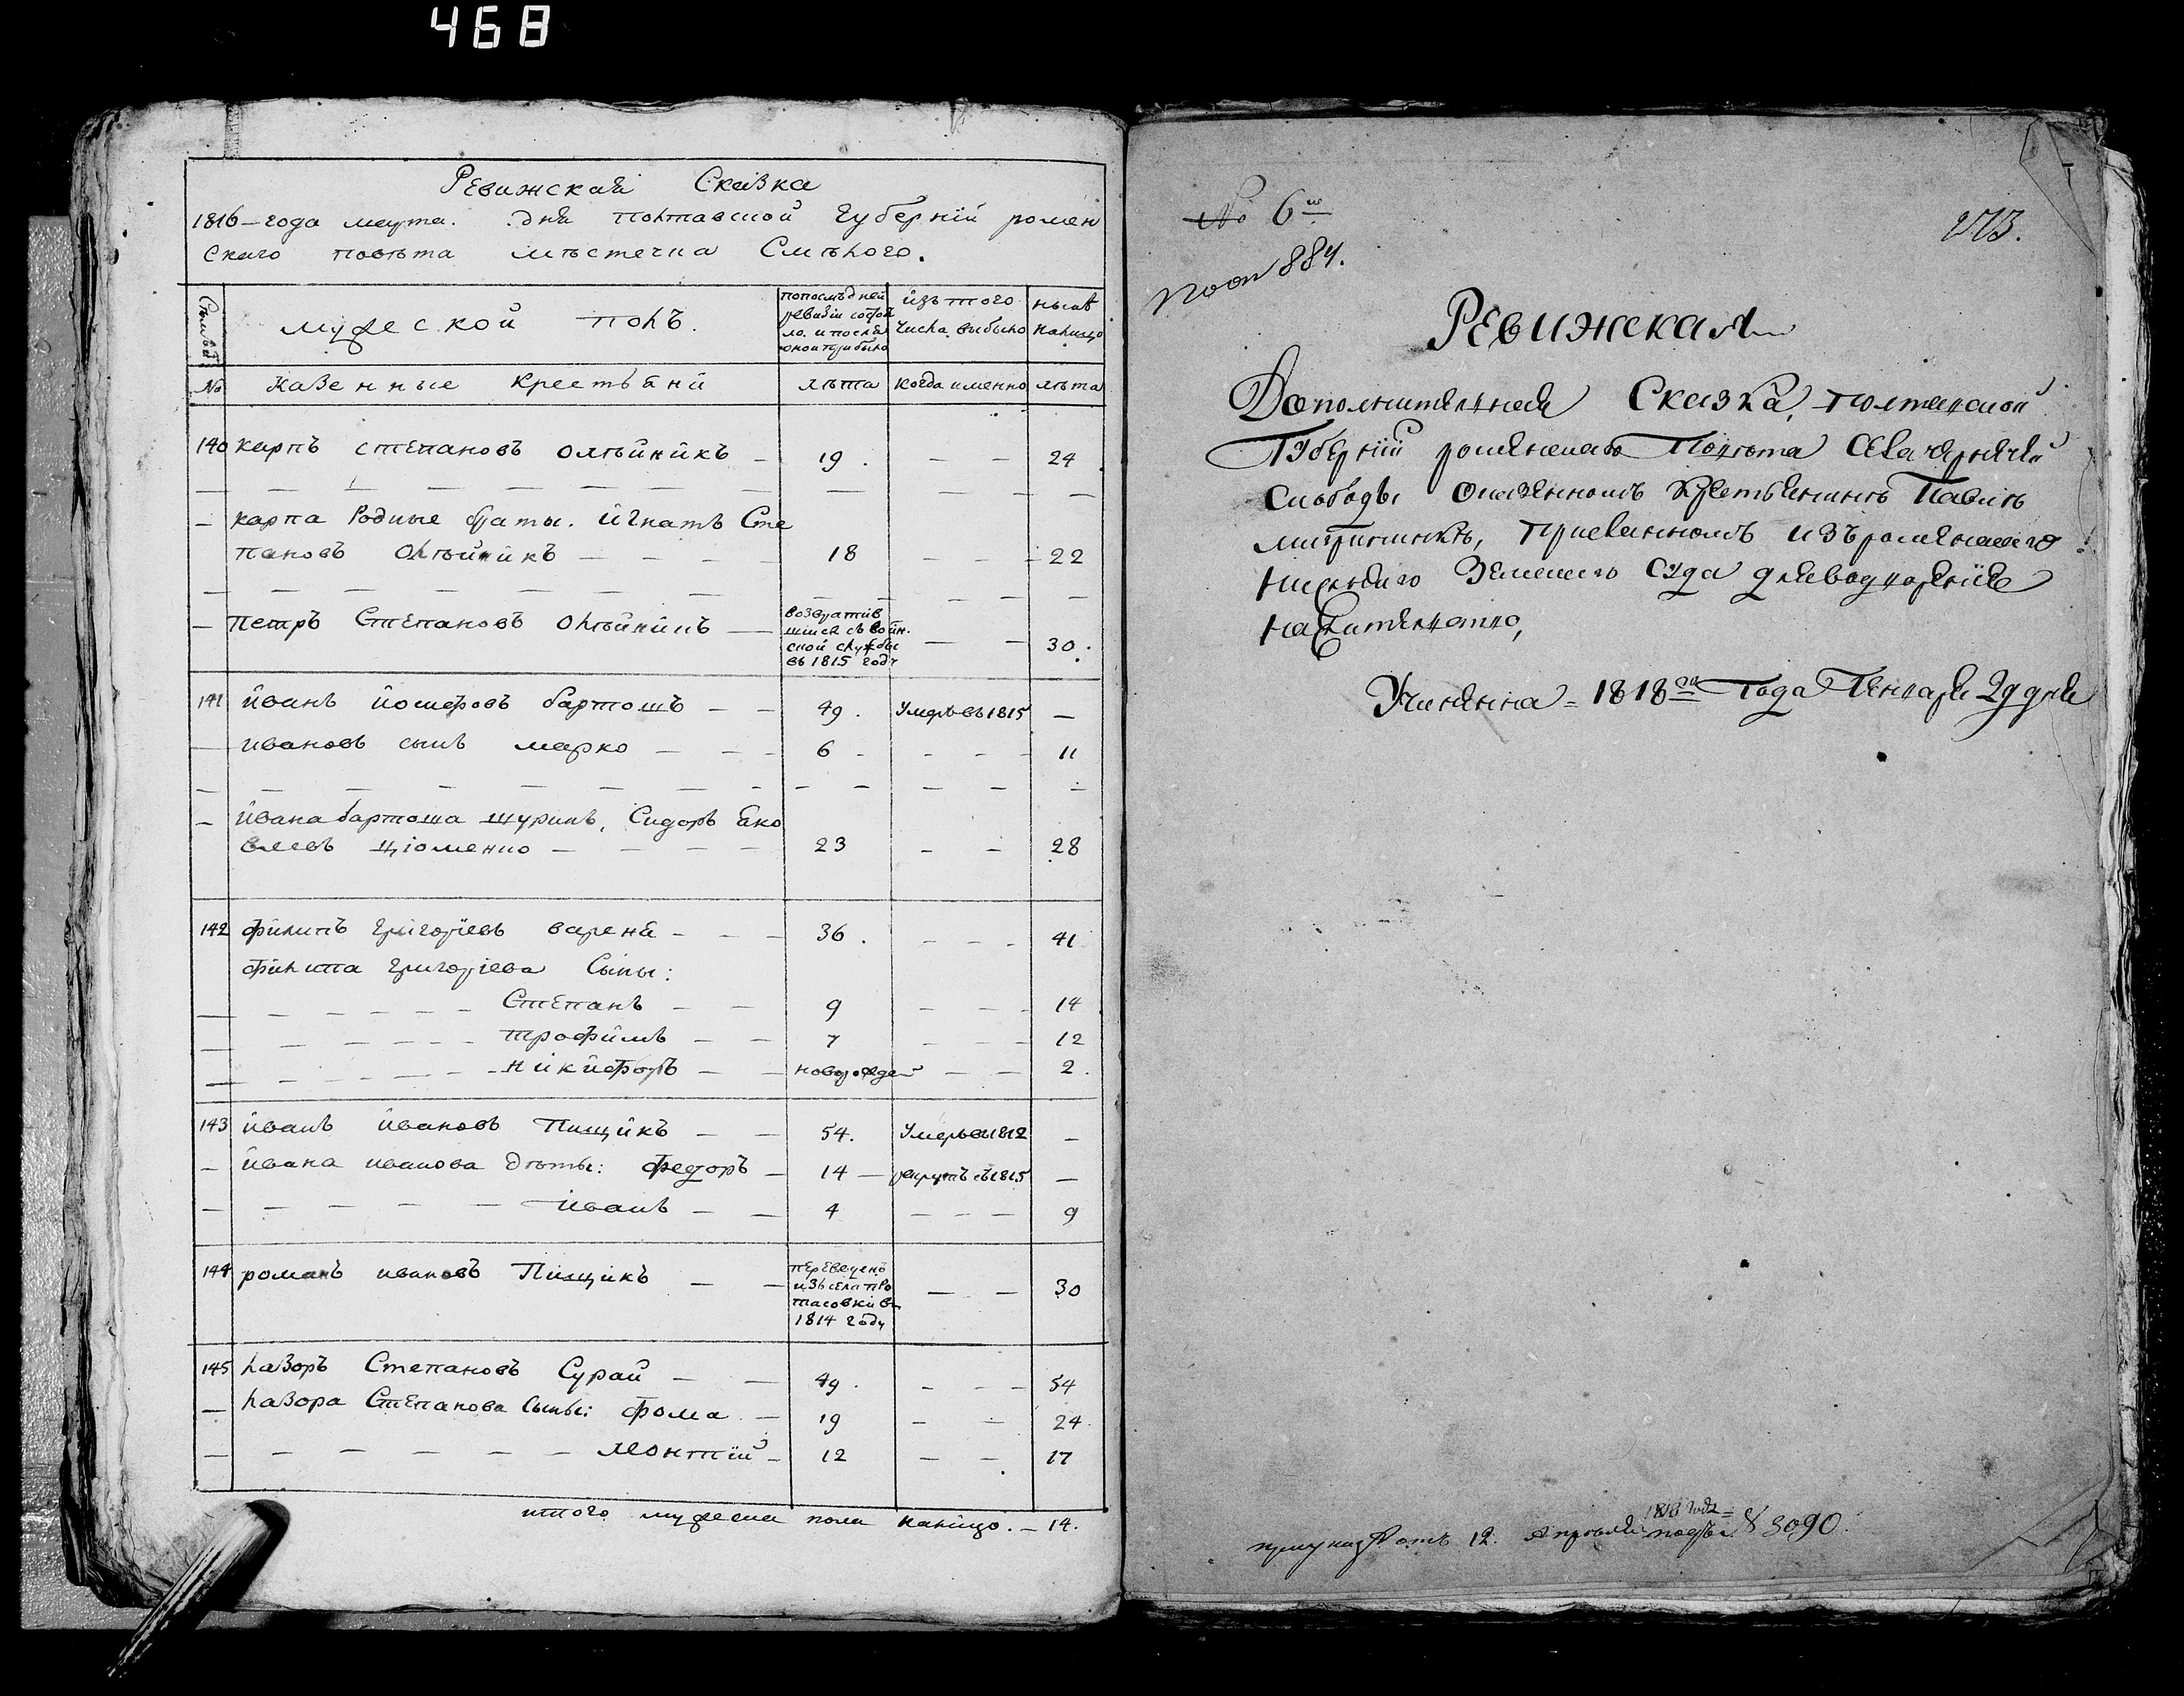 468
Ревижская Сказка
1816 – года марта. дня Полтавской губернїй ромен
скаго повѣта мѣстечка Смѣлого.
мужеской полъ.
попослѣдней
ревизїи состоя
ло. и после
оной прибыло
изъ того
числа выбыло
нынѣ
налицо
№ Казенные Крестьяни лѣта когда именно лѣта
140 карпъ степановъ олѣйникъ – 19. – – 24
– карпа Родные браты. игнатъ Сте
пановъ Олѣйникъ – – – – 18 – – 22
– петръ Степановъ Олѣйникъ –
возвратив
шисъ съ воин.
ской службы
въ 1815 году
– – 30.
141 иванъ йосифовъ бартошъ – – 49. Умеръ въ 1815 –
– ивановъ сынъ марко – – – 6 – – – – 11
– Ивана бартоша шуринъ, Сидоръ Яко
влевъ – – – – 23 – – 28
142 филипъ григорїевъ вареня – – – 36. – – – 41
филипа григорїева Сыны:
– – – – Степанъ – – 9 – – – 14
– – – – трофимъ – – 7 – – – 12
– – – – никифоръ – – новорожден – – 2.
143 иванъ ивановъ Пищикъ – – 54. Умеръ въ 1812 –
– ивана иванова дѣты: федоръ – 14 – рекрутъ въ 1815 –
– – – – – иванъ – – 4 – – – 9
144 романъ ивановъ Пищикъ – –
переведенъ
изъ села про
тасовки в
1814 году
– – 30
145 лазоръ Степановъ Сурай – – 49. – – – 54
– лазора Степанова Сыны: фома – 19 – – 24
– – – – – – леонтїй – 12 – – 17
итого мужеска пола налицо. – 14.
№ 6
884.
273.
Ревижская
Дополнителная Сказка, полтавской
Губернїй роменскаго Повѣта села чернечей
Слободы Оказенномъ крестьянинѣ Павлѣ
митрипникѣ, присланномъ изъ роменскаго
нижняго Земскаго Суда для водворенїя
на
Учинянна = 1818го Года Генваря 29 дня
1818 года =
отъ 12. Апрѣля подъ № 3090.